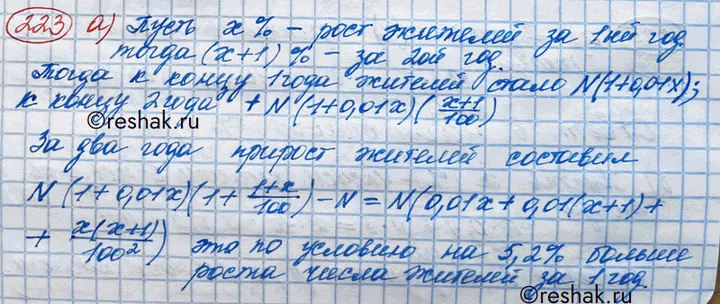 223 а) Пусть x % – рост жителей за 1ый год
тогда (x+1) % – за 2ой год.
Тогда к концу 1 года жителей стало N(1+0,01x);
к концу 2 года + N (1+0,01x) ( (x+1)/100 )
©reshak.ru
За два года прирост жителей составил
N (1 + 0,01x)(1 + (1+x)/100) – N = N(0,01x + 0,01(x+1) +
+ x(x+1)/100²) это по условию на 5,2% больше
роста числа жителей за 1 год.
©reshak.ru